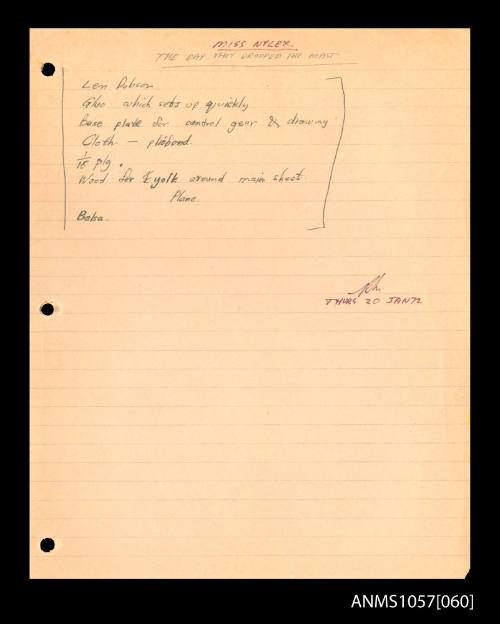 MISS NYLEX
THE DAY THEY DROPPED THE MAST
Len Dobson
Glue which sets up quickly
Base plate for control gear & drawing
Cloth - plibond.
1/16 ply.
Wood for Eyolk around main sheet
Plane.
Balsa.
THURS 20 JAN 72
ANMS1057[060]